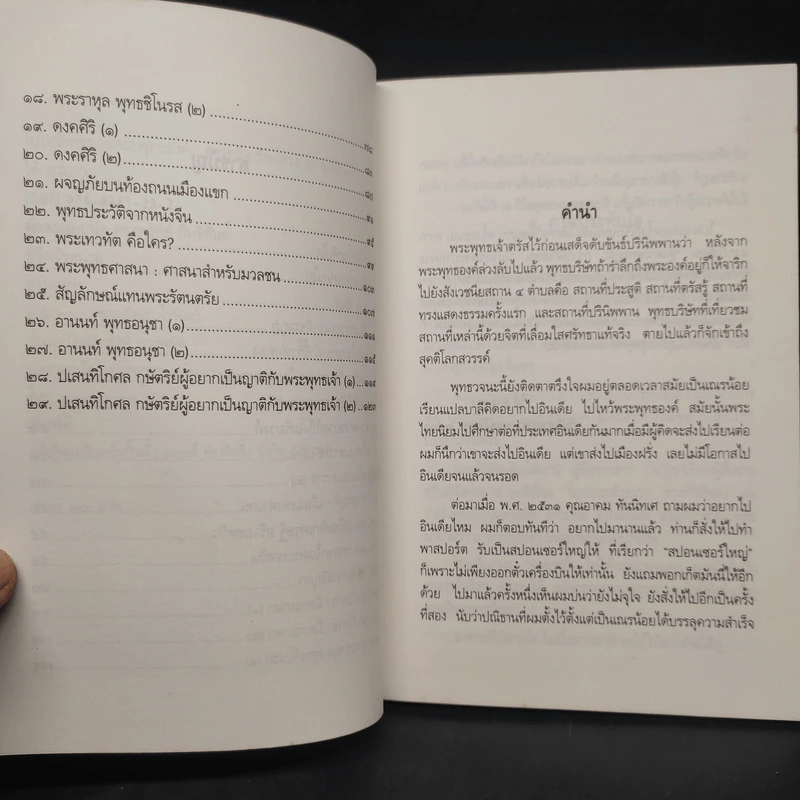 ๑๘. พระราหุล พุทธชิโนรส (๒)
๑๙. ดงคศิริ (๑)
๒๐. ดงคศิริ (๒)
๒๑. ผจญภัยบนท้องถนนเมืองแขก
๒๒. พุทธประวัติจากหนังจีน
๒๓. พระเทวทัต คือใคร?
๒๔. พระพุทธศาสนา : ศาสนาสำหรับมวลชน
๒๕. สัญลักษณ์แทนพระรัตนตรัย
๒๖. อานนท์ พุทธอนุชา (๑)
๒๗. อานนท์ พุทธอนุชา (๒)
๒๘. ปเสนทิโกศล กษัตริย์ผู้อยากเป็นญาติกับพระพุทธเจ้า (๑)
๒๙. ปเสนทิโกศล กษัตริย์ผู้อยากเป็นญาติกับพระพุทธเจ้า (๒)
คำนำ
พระพุทธเจ้าตรัสไว้ก่อนเสด็จดับขันธ์ปรินิพพานว่า หลังจาก
พระพุทธองค์ล่วงลับไปแล้ว พุทธบริษัทถ้ารำลึกถึงพระองค์อยู่ก็ให้จาริก
ไปยังสังเวชนียสถาน ๔ ตำบลคือ สถานที่ประสูติ สถานที่ตรัสรู้ สถานที่
ทรงแสดงธรรมครั้งแรก และสถานที่ปรินิพพาน พุทธบริษัทที่เที่ยวชม
สถานที่เหล่านี้ด้วยจิตที่เลื่อมใสศรัทธาแท้จริง ตายไปแล้วก็จักเข้าถึง
สุคติโลกสวรรค์
พุทธวจนะนี้ยังติดตาตรึงใจผมอยู่ตลอดเวลาสมัยเป็นเณรน้อย
เรียนแปลบาลีคิดอยากไปอินเดีย ไปไหว้พระพุทธองค์ สมัยนั้นพระ
ไทยนิยมไปศึกษาต่อที่ประเทศอินเดียกันมากเมื่อมีผู้คิดจะส่งไปเรียนต่อ
ผมก็นึกว่าเขาจะส่งไปอินเดีย แต่เขาส่งไปเมืองฝรั่ง เลยไม่มีโอกาสไป
อินเดียจนแล้วจนรอด
ต่อมาเมื่อ พ.ศ. ๒๕๓๑ คุณอาคม ทันนิทเศ ถามผมว่าอยากไป
อินเดียไหม ผมก็ตอบทันทีว่า อยากไปมานานแล้ว ท่านก็สั่งให้ไปทำ
พาสปอร์ต รับเป็นสปอนเซอร์ใหญ่ให้ ที่เรียกว่า “สปอนเซอร์ใหญ่”
ก็เพราะไม่เพียงออกตั๋วเครื่องบินให้เท่านั้น ยังแถมพอกเก็ตมันนี่ให้อีก
ด้วย ไปมาแล้วครั้งหนึ่งเห็นผมบ่นว่ายังไม่จุใจ ยังสั่งให้ไปอีกเป็นครั้ง
ที่สอง นับว่าปณิธานที่ผมตั้งไว้ตั้งแต่เป็นเณรน้อยได้บรรลุความสำเร็จ